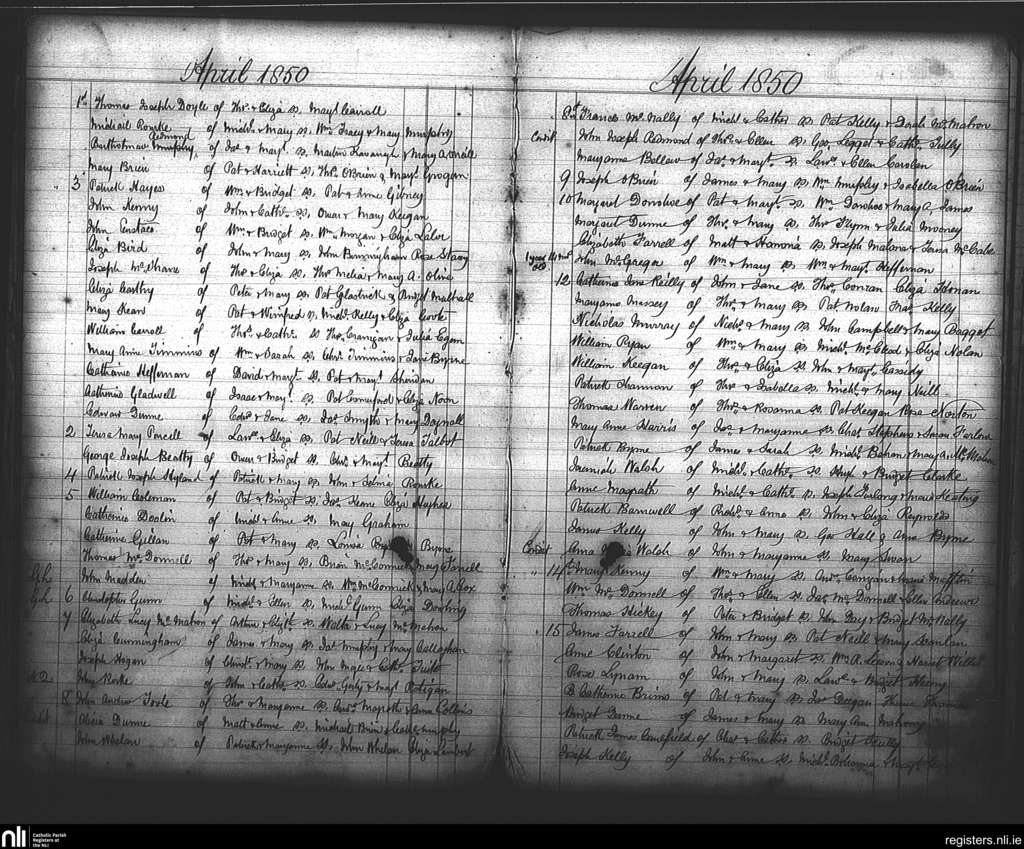 April 1850
1st Thomas Joseph Doyle of Thos. & Eliza Ss. Mayt Cairoll
Michael Rourke of Michl. & Mary Ss. Wm. Tracy & Mary Murphy
Redmond
Bartholomew Murphy of Jas. & Mayt. Ss. Martin Kavanagh & Mary A. Neill
Mary Brien of Pat & Harriett Ss. Thos. O'Brien & Mayt. Grogan
3 Patrick Hayes of Wm. & Bridget Ss. Pat & Anne Gibney
John Kenny of John & Cathe. Ss. Owen & Mary Keegan
John Eustace of Wm. & Bridget Ss. Wm. Morgan & Eliza Lalor
Eliza Bird of John & Mary Ss. John Birmingham Rose Stacy
Joseph McShane of Thos. & Eliza Ss. Thos. Melia & Mary A. Olive
Eliza Carthy of Peter & Mary Ss. Pat & Bridget
Mary Kean of Pat & Winifred Ss. Michl. Kelly & Eliza Cooke
William Carroll of Thos. & Cathe. Ss. Thos. Crannigan & Julia Egan
Mary Anne Timmins of Wm. & Sarah Ss. Chrs. Timmins & Jane Byrne
Catharine Heffernan of David & Mayt. Ss. Pat & Mayt. Sheridan
Catherine Gladwell of Isaac & Mayt. Ss. Pat & Eliza Noon
Edward Dunne of Edwd. & Jane Ss. Jas. Smyth & Mary Darnall
2 Teresa Mary Purcell of Lawe. & Eliza Ss. Pat Neill & Teresa Talbot
George Joseph Beatty of Owen & Bridget Ss. Chrs. & Mayt. Beatty
4 Patrick Joseph Hyland of Patrick & Mary Ss. John & Selina Rourke
5 William Coleman of Pat & Bridget Ss. Jas. Keane Eliza Hughes
Catherine Doolin of Michl. & Anne Ss. Mary Graham
Catherine Cullan of Pat & Mary Ss. Louisa Byrne
Thomas McDonnell of Thos. & Mary Ss. Brien McCormick Mary Farrell
Gh John Madden of Michl. & Maryanne Ss. Wm. McCormick & Mary A. Cox
Gh 6 Christopher Gunn of Michl. & Ellen Ss. Michl. Gunn Eliza Dowling
7 Elizabeth Lucy McMahon of Arthur & Elizth. Ss. Walter & Lucy McMahon
Eliza Cunningham of James & Mary Ss. Jas. Murphy & Mary Callaghan
Joseph Hogan of Christr. & Mary Ss. John Magee & Cathe.
John Rorke of John & Cathe. Ss. Edwd. & Mayt.
8 John Andrew Toole of Thos. & Maryanne Ss. Andw. Magrath & Anna Collins
Alicia Dunne of Matt & Anne Ss. Michael Brien & Cathe. Murphy
John Whelan of Patrick & Maryanne Ss. John Whelan Eliza Lambert
April 1850
8th Frances McNally of Michl. & Cathe. Ss. Pat Kelly & Sarah McMahon
Condit. John Joseph Redmond of Thos. & Ellen Ss. Geo. Legget & Cathe. Tully
Maryanne Bellew of Jas. & Mayt. Ss. Lawe. & Ellen Carolan
9 Joseph O'Brien of James & Mary Ss. Wm. Murphy & Isabella O'Brien
10 Margaret Donohoe of Pat & Mayt. Ss. Wm. Donohoe & Mary A. James
Margaret Dunne of Thos. & Mary Ss. Thos. Flynn & Julia Mooney
Elizabeth Farrell of Matt & Hannah Ss. Joseph Malone & Sarah McCabe
1 year old John McGregor of Wm. & Mary Ss. Wm. & Mayt. Heffernan
12 Catherine Jane Reilly of John & Jane Ss. Thos. Conran Eliza
Maryanne Massey of Thos. & Mary Ss. Pat Nolan Kelly
Nicholas Murray of Nichs. & Mary Ss. John Campbell & Mary Baggot
William Ryan of Wm. & Mary Ss. Michl. McCleod & Eliza Nolan
William Keegan of Thos. & Eliza Ss. John & Mayt. Cassedy
Patrick Shannon of Thos. & Isabella Ss. Michl. & Mary Neill
Thomas Warren of Thos. & Rosanna Ss. Pat Keegan Rose Norton
Mary Anne Harris of Jas. & Maryanne Ss. Chas. Stephens & Sarah Furlong
Patrick Byrne of James & Sarah Ss. Michl. Bohan Mary A. McMahon
Jeremiah Walsh of Michl. & Cathe. Ss. Hugh & Bridget Clarke
Anne Magrath of Michl. & Cathe. Ss. Joseph Furlong & Maria Keating
Patrick Barnwell of Richd. & Anne Ss. John & Eliza Reynolds
James Kelly of John & Mary Ss. Geo. Hall & Anne Byrne
Condit Anna Walsh of John & Maryanne Ss. Mary Swan
14th Mary Kenny of Wm. & Mary Ss. Andw. & Maria
Wm. McDonnell of Thos. & Ellen Ss. Jas. McDonnell & Ellen Andrews
Thomas Hickey of Peter & Bridget Ss. John Day & Bridget McNally
15 James Farrell of John & Mary Ss. Pat Neill & Mary Scanlan
Anne Clinton of John & Margaret Ss. Wm. A. & Harriet
Rose Lynam of John & Mary Ss. Lawe. & Bridget
B Catherine Brins of Pat & Mary Ss. Jas. Deegan
Bridget Dunne of James & Mary Ss. Mary Ann Mahony
Patrick James Canefield of Chas. & Cathe. Ss. Bridget Scully
Joseph Kelly of John & Anne Ss. Michl.
nli Catholic Parish
Registers at
the NLI
registers.nli.ie